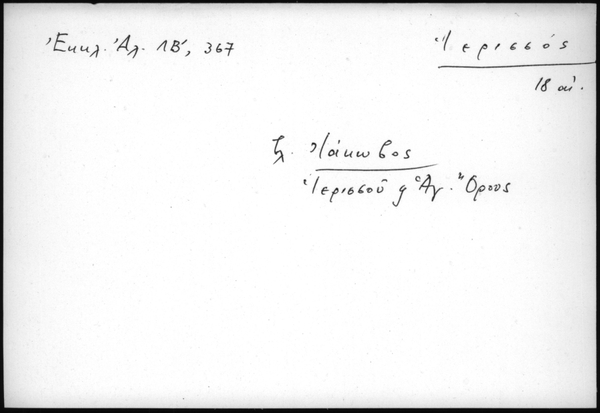 Ἐκκλ. Ἀλ. ΛΒ', 367
Ἱερισσός
18 αἰ.
Ἰάκωβος
Ἱερισσοῦ ϗ Ἁγ. Ὄρους